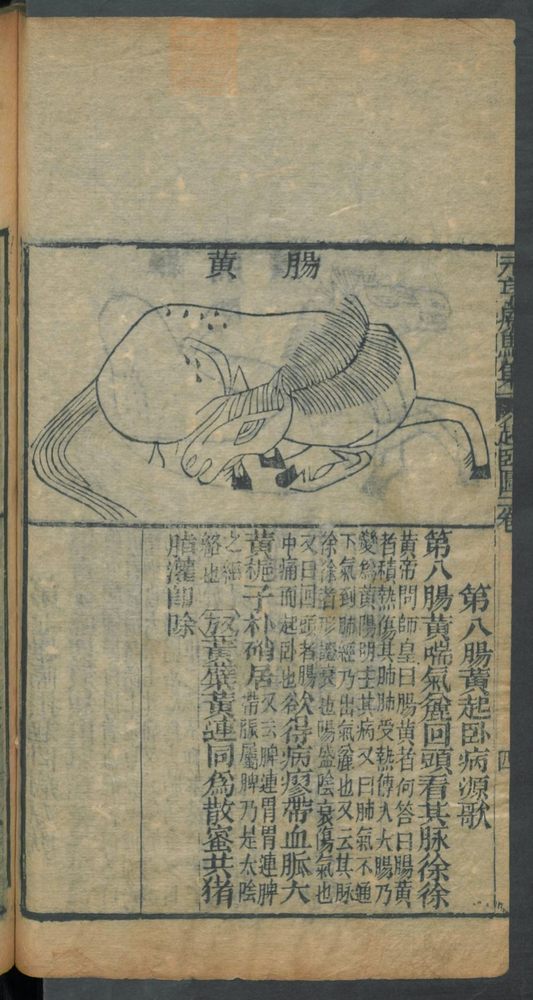 腸黃
第八腸黃起卧病源歌
第八腸黃喘氣麄回頭看其脉徐徐
黃帝問師皇曰腸黃者何答曰腸黃
者積熱傷其肺肺受熱傳入大腸乃
變爲黃陽明主其病又曰肺氣不通
下氣到肺經乃出氣麄也又云其脉
徐徐者形證衰也陽盛陰衰傷氣也
又曰回頭者腸
中痛而起卧也
欲得病瘳帶血脈六
黃梔子朴硝居
又云脾連胃胃連脾
帶脈屬脾乃是太陰
之經
絡也
黃蘗黃連同爲散蜜共猪
脂灌卽除
四